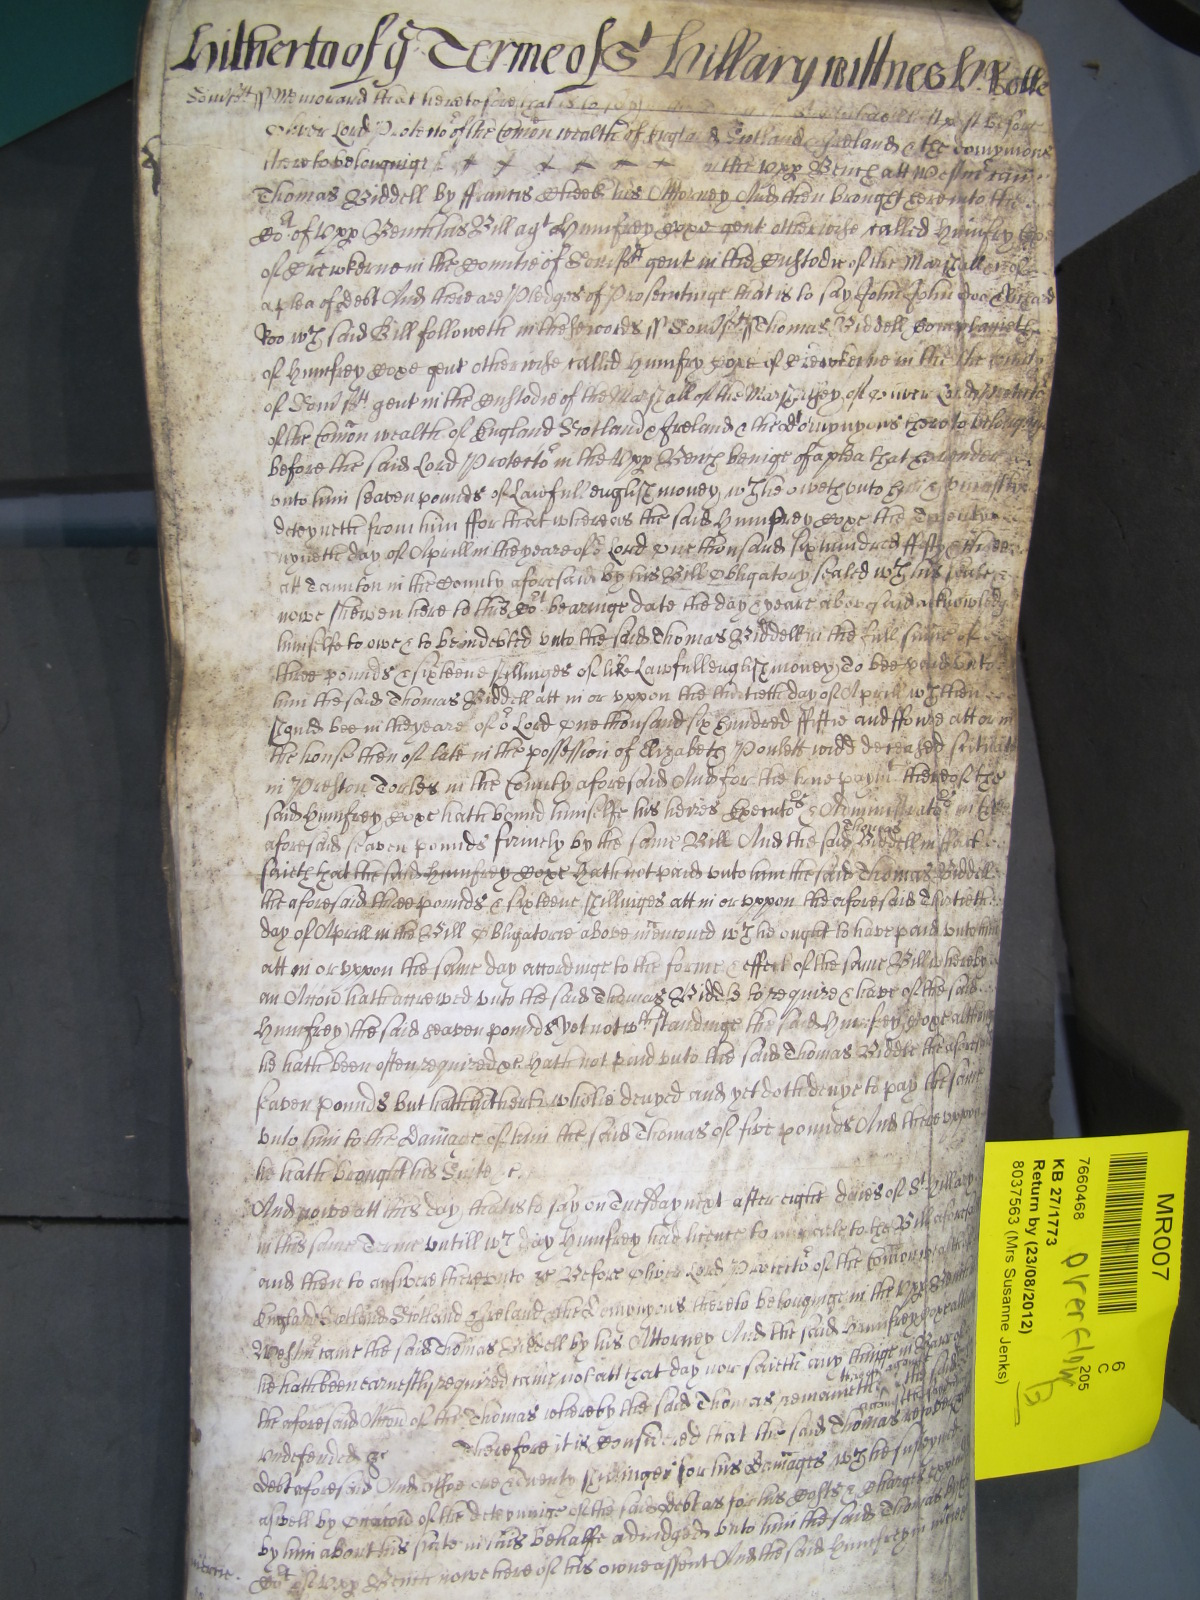 Hitherto of ye Terme of St Hillary wittnes H: Rolle
Somsett ss Memorand that heretofore that is to say last past before
Oliver Lord Protector of the Comon wealth of England Scotland & Ireland & the Dominions
thereto belonginge in the Upp Bench att Westmr came
Thomas Biddell by ffrancis his Attorney And then brought here into the
Cort of Upp Bench his Bill agt Humfrey Cope gent otherwise called Humfry Cope
of Crewkerne in the Countie of Somsett gent in the Custodie of the Marshall &c of
a plea of Debt And there are Pledges of Prosecutinge that is to say John John Doe & Richard
Roo wch said Bill followeth in these words ss Somsett ss Thomas Biddell Complaineth
of Humfrey Cope gent otherwise called Humfry Cope of Crewkerne in the the County
of Somsett gent in the Custodie of the Marshall of the Marshalsey of Oliver Lord Protector
of the Comon wealth of England Scotland & Ireland & the Dominyons thereto belonginge
before the said Lord Protector in the Upp Bench beinge of a plea that he render
unto him seaven pounds of Lawfull english money wch he oweth unto him & uniustly
deteyneth from him ffor that whereas the said Humfrey Cope the Twenty
nyneth day of Aprill in the yeare of or Lord One thousand six hundred ffifty & three
att Taunton in the County aforesaid by his Bill Obligatory sealed wth his seale
nowe shewen here to this Cort bearinge date the day & yeare abovesaid acknowledged
himselfe to owe & to be indebted unto the said Thomas Biddell in the full sume of
three pounds & sixteene shillinges of like Lawfull english money To bee paid unto
him the said Thomas Biddell att in or uppon the thirtieth day of Aprill wch then
should bee in the yeare of or Lord One thousand six hundred ffiftie and ffowre att or in
the house then of late in the possession of Elizabeth Poulett widd deceased scituate
in Preston Torles in the County aforesaid And for the true paymt thereof the
said Humfrey Cope hath bound himselfe his heires Executors & Administrators in the
aforesaid seaven pounds firmely by the same Bill And the said Thomas Biddell in ffact
saieth that the said Humfrey Cope hath not paid unto him the said Thomas Biddell
the aforesaid three pounds & sixteene shillinges att in or uppon the aforesaid Thirtieth
day of Aprill in the Bill Obligatorie above mentoned wch he ought to have paid unto him
att in or uppon the same day accordinge to the forme & effect of the same Bill whereby
an Action hath accrewed unto the said Thomas Biddle to require & have of the said
Humfrey the said seaven pounds Yet notwthstandinge the said Humfrey Cope although
he hath been often required &c Hath not paid unto the said Thomas Biddle the aforesaid
seaven pounds but hath hitherto wholie denyed and yet doth denye to pay the same
unto him to the Damage of him the said Thomas of five pounds And thereuppon
he hath brought his Suite &c
And nowe att this day that is to say on Tuesday next after eight daies of St Hillary
in this same Terme untill wch day Humfrey had licence to imparle to the Bill aforesaid
and then to answere thereunto &c Before Oliver Lord Protector of the Comonwealth of
England Scotland Scotland & Ireland & the Dominyons thereto belonginge in the Upp Bench
Westmr came the said Thomas Biddell by his Attorney And the said Humfrey Cope although
he hath been earnestly required came not att that day nor saieth any thinge in Barr of
the aforesaid Action of the Thomas whereby the said Thomas remaineth the said
Undefended &c Therefore it is Considered that the said Thomas recover
debt aforesaid And alsoe one & Twenty shillinges for his Damages wch he susteyned
aswell by occasion of the deteyninge of the said debt as for his Costs & Charges
by him about his suite in this behalfe adiudged unto him the said Thomas by the
Cort of Upp Bench nowe here of his owne assent And the said Humfrey in mercy
MR007
6
C
205
7660468
Overflow
KB 27/1773
Return by (23/08/2012)
8037563 (Mrs Susanne Jenks)